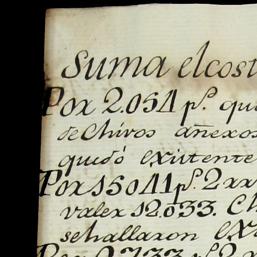 Suma el cost
Por 2.054 p.s qu
de Chivos añexos
quedó existente
Por 15041 p.s 2 rr
valer 12.033. Ch
se hallaron ex